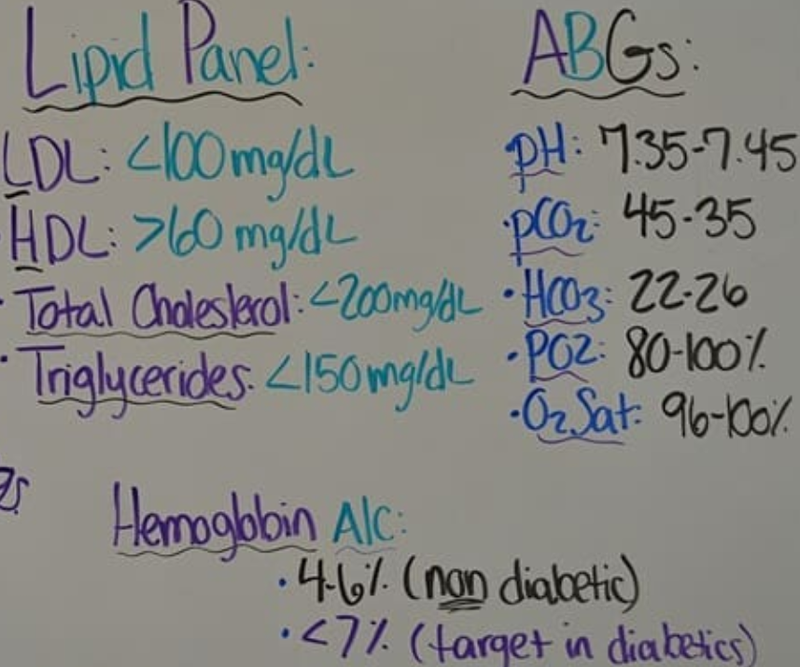 Lipid Panel:
LDL: <100 mg/dL
HDL: >60 mg/dL
· Total Cholesterol: <200mg/dL
· Triglycerides: <150 mg/dL
ABGs:
·pH: 7.35-7.45
·pCO2: 45-35
·HCO3: 22-26
·PO2: 80-100%
·O2 Sat: 96-100%
Hemoglobin A1C:
·4-6% (non diabetic)
·<7% (target in diabetics)